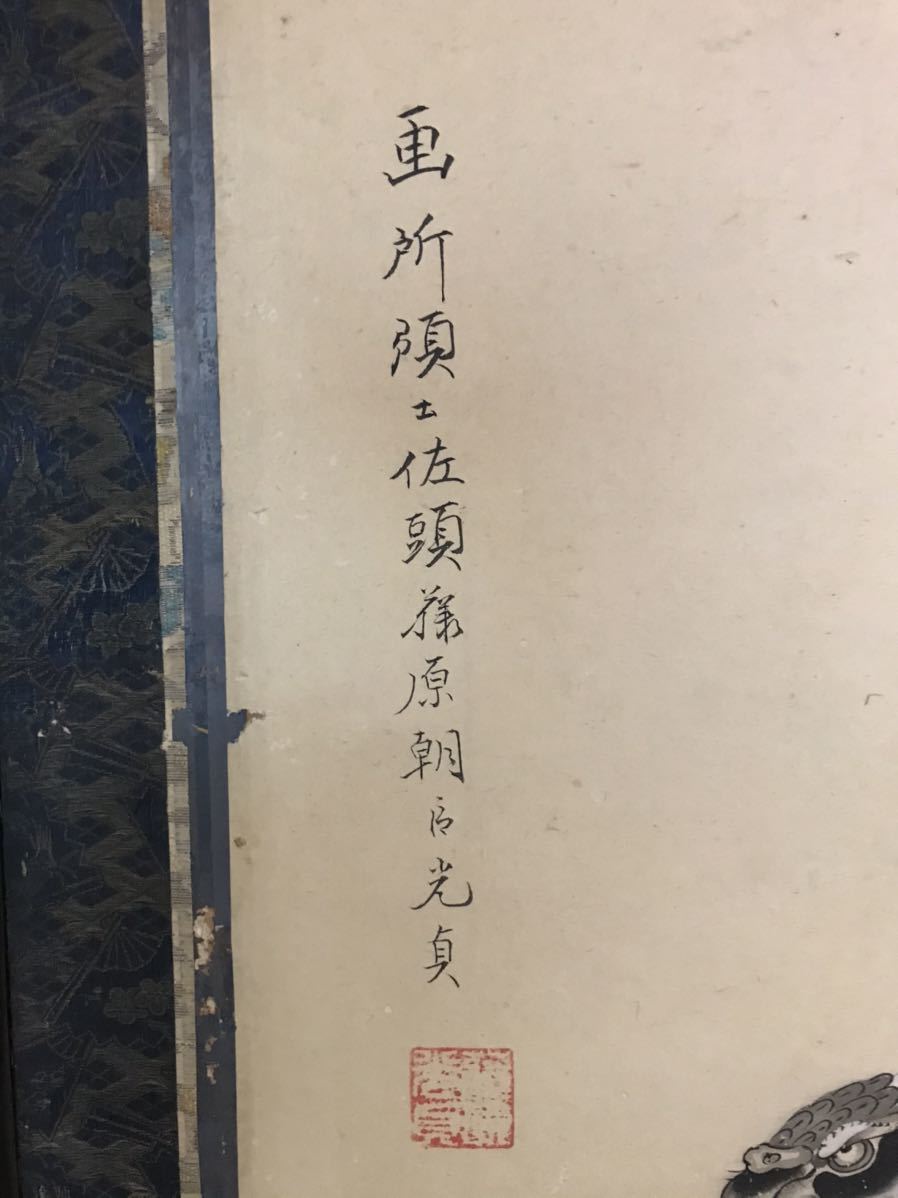 画所預土佐頭藤原朝臣光貞